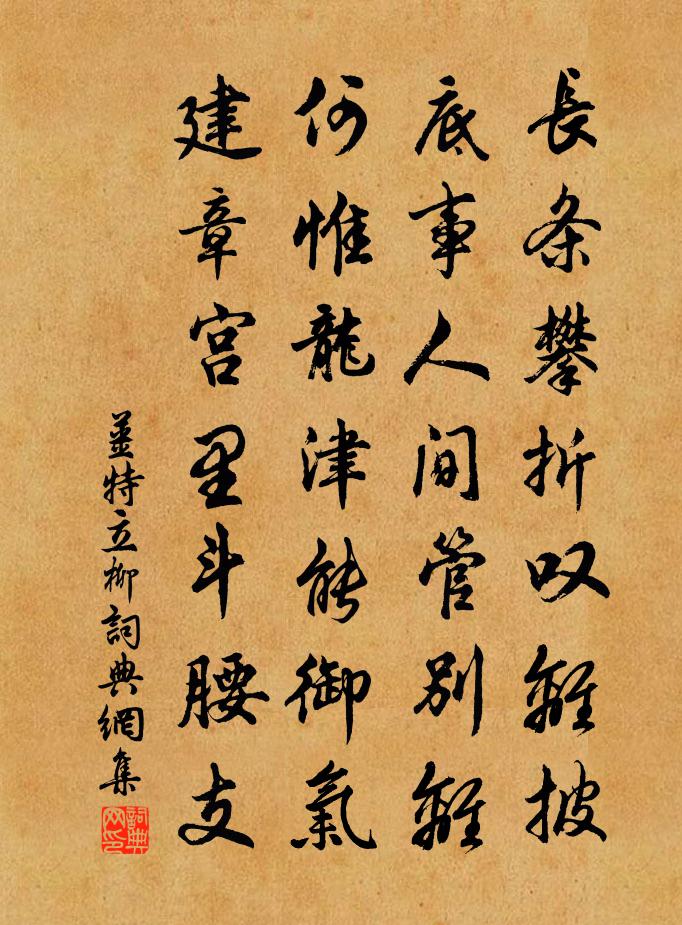 長条攀折叹離披
底事人间管别離
何惟龍津能御氣
建章宫里斗腰支
薑特立柳詞典網集
詞典网印